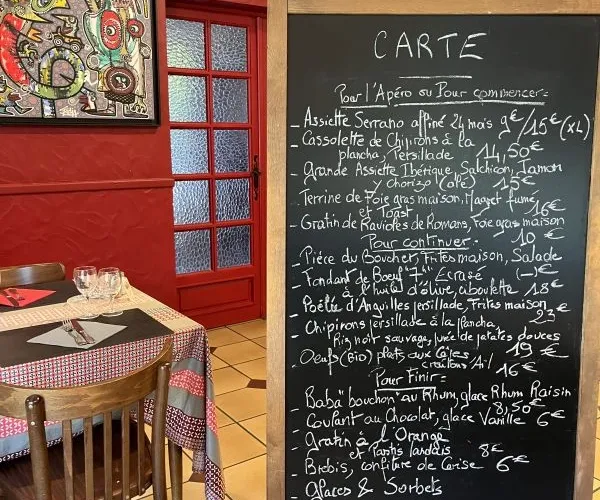 CARTE
Pour l'Apéro ou Pour commencer =
_ Assiette Serrano affiné 24 mois 9€/15€ (XL)
_ Cassolette de Chipirons à la
plancha, Persillade 14,50€
_ Grande Assiette Ibérique, Salchicon, Jamon
Chorizo (olé) 15€
_ Terrine de Foie gras maison, Magret fumé
et Toast 16€
_ Gratin de Ravioles de Romans, foie gras maison
10€
Pour continuer -
_ Pièce du Boucher, Frites maison, Salade
(-)€
_ Fondant de Boeuf "7h" Ecrasé
à l'huile d'olive, ciboulette 18€
_ Poêlée d'Anguilles persillade, Frites maison
23€
_ Chipirons persillade à la Plancha,
Riz noir sauvage, purée de patates douces
19€
_ Oeufs (Bio) plats aux Cèpes
croutons Ail 16€
Pour Finir -
_ Baba "bouchon" au Rhum, glace Rhum Raisin
8,50€
_ Coulant au Chocolat, glace Vanille 6€
_ Gratin à l'Orange
et Pastis landais 8€
_ Brebis, confiture de Cerise 6€
_ Glaces & Sorbets